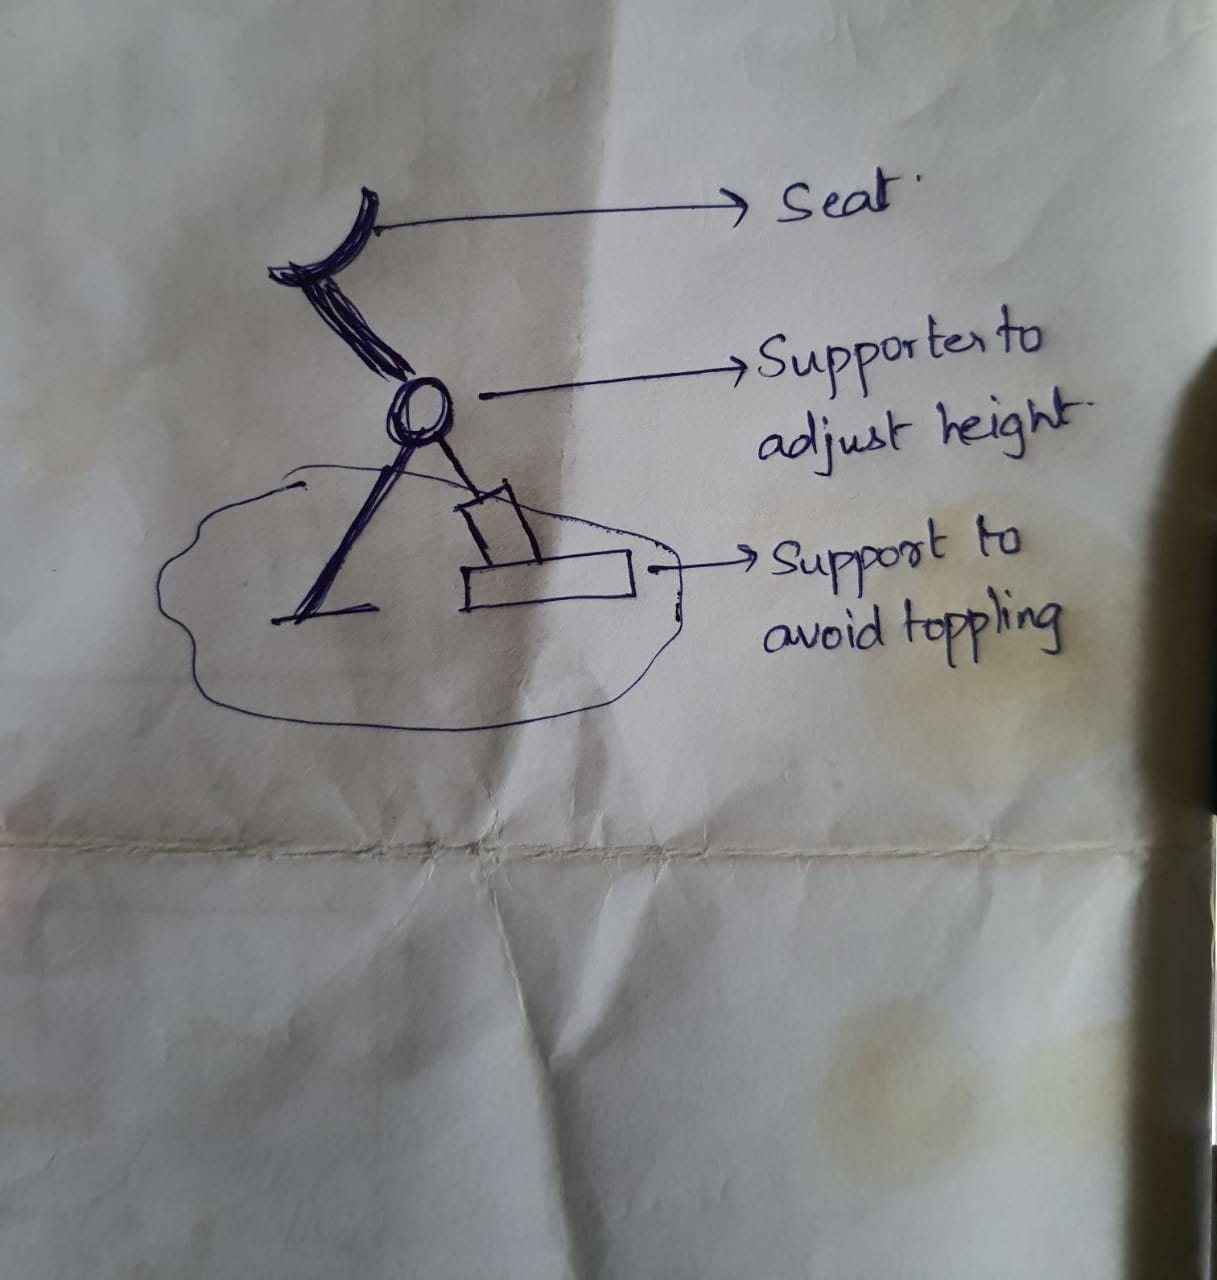 Seat.
Supporter to
adjust height.
Support to
avoid toppling